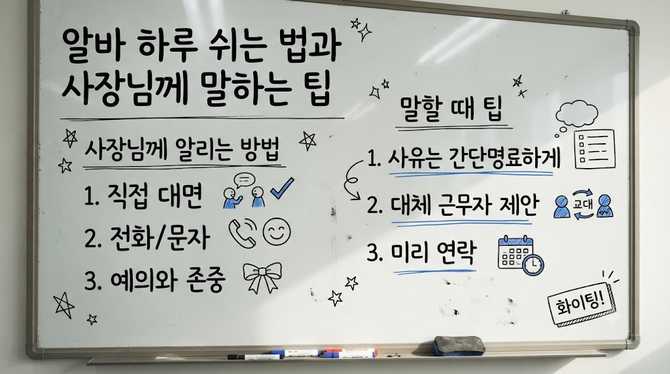 알바 하루 쉬는 법과
사장님께 말하는 팁
사장님께 알리는 방법
1. 직접 대면
2. 전화/문자
3. 예의와 존중
말할 때 팁
1. 사유는 간단명료하게
2. 대체 근무자 제안
교대
3. 미리 연락
화이팅!